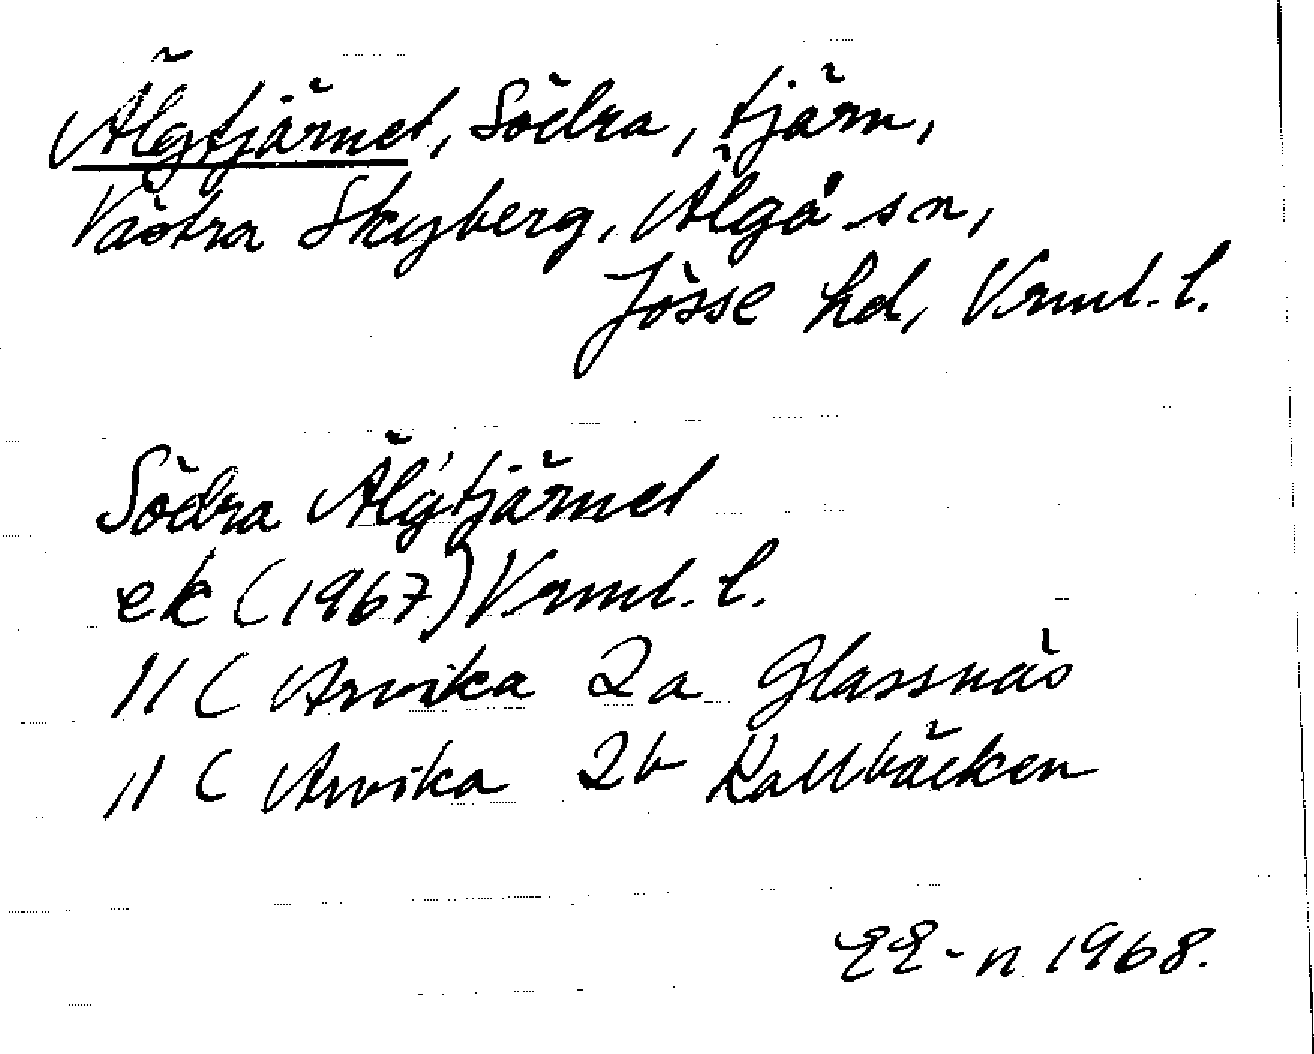 Älgtjärnet, Södra, tjärn,
Västra Skyberg, Älgå sn,
Jösse hd, Vrml. l.
Södra Älgtjärnet
ek (1967) Vrml. l.
11 C Arvika 2a Glassnäs
11 C Arvika 2b Kallbäcken
EE-n 1968.